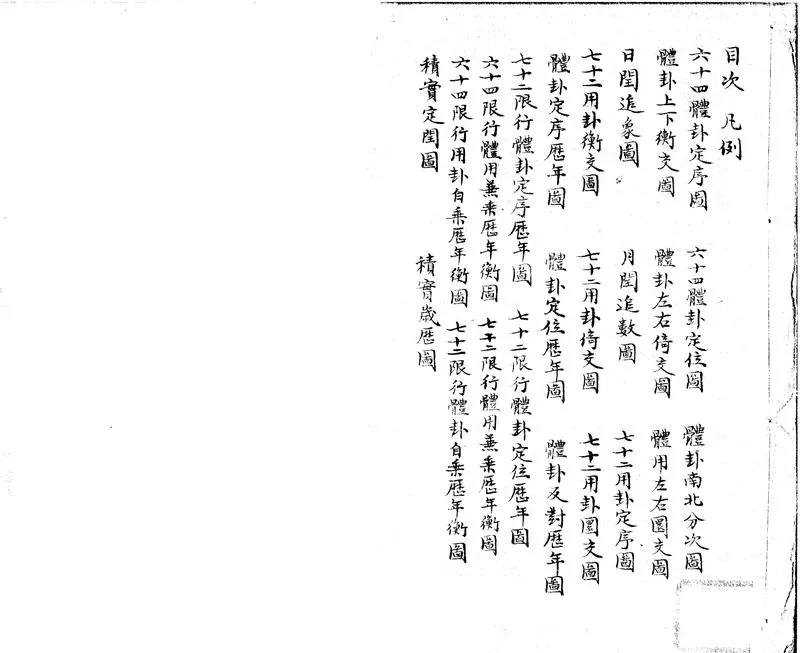 目次 凡例
六十四體卦定序圖 六十四體卦定位圖 體卦南北分次圖
體卦上下衡交圖 體卦左右倚交圖 體用左右圜交圖
日閏追象圖 月閏追數圖 七十二用卦定序圖
七十二用卦衡交圖 七十二用卦倚交圖 七十二用卦圜交圖
體卦定序歷年圖 體卦定位歷年圖 體卦反對歷年圖
七十二限行體卦定序歷年圖 七十二限行體卦定位歷年圖
六十四限行體用兼乘歷年衡圖 七十二限行體用兼乘歷年衡圖
六十四限行用卦自乘歷年衡圖 七十二限行體卦自乘歷年衡圖
積實定閏圖 積實歲歷圖